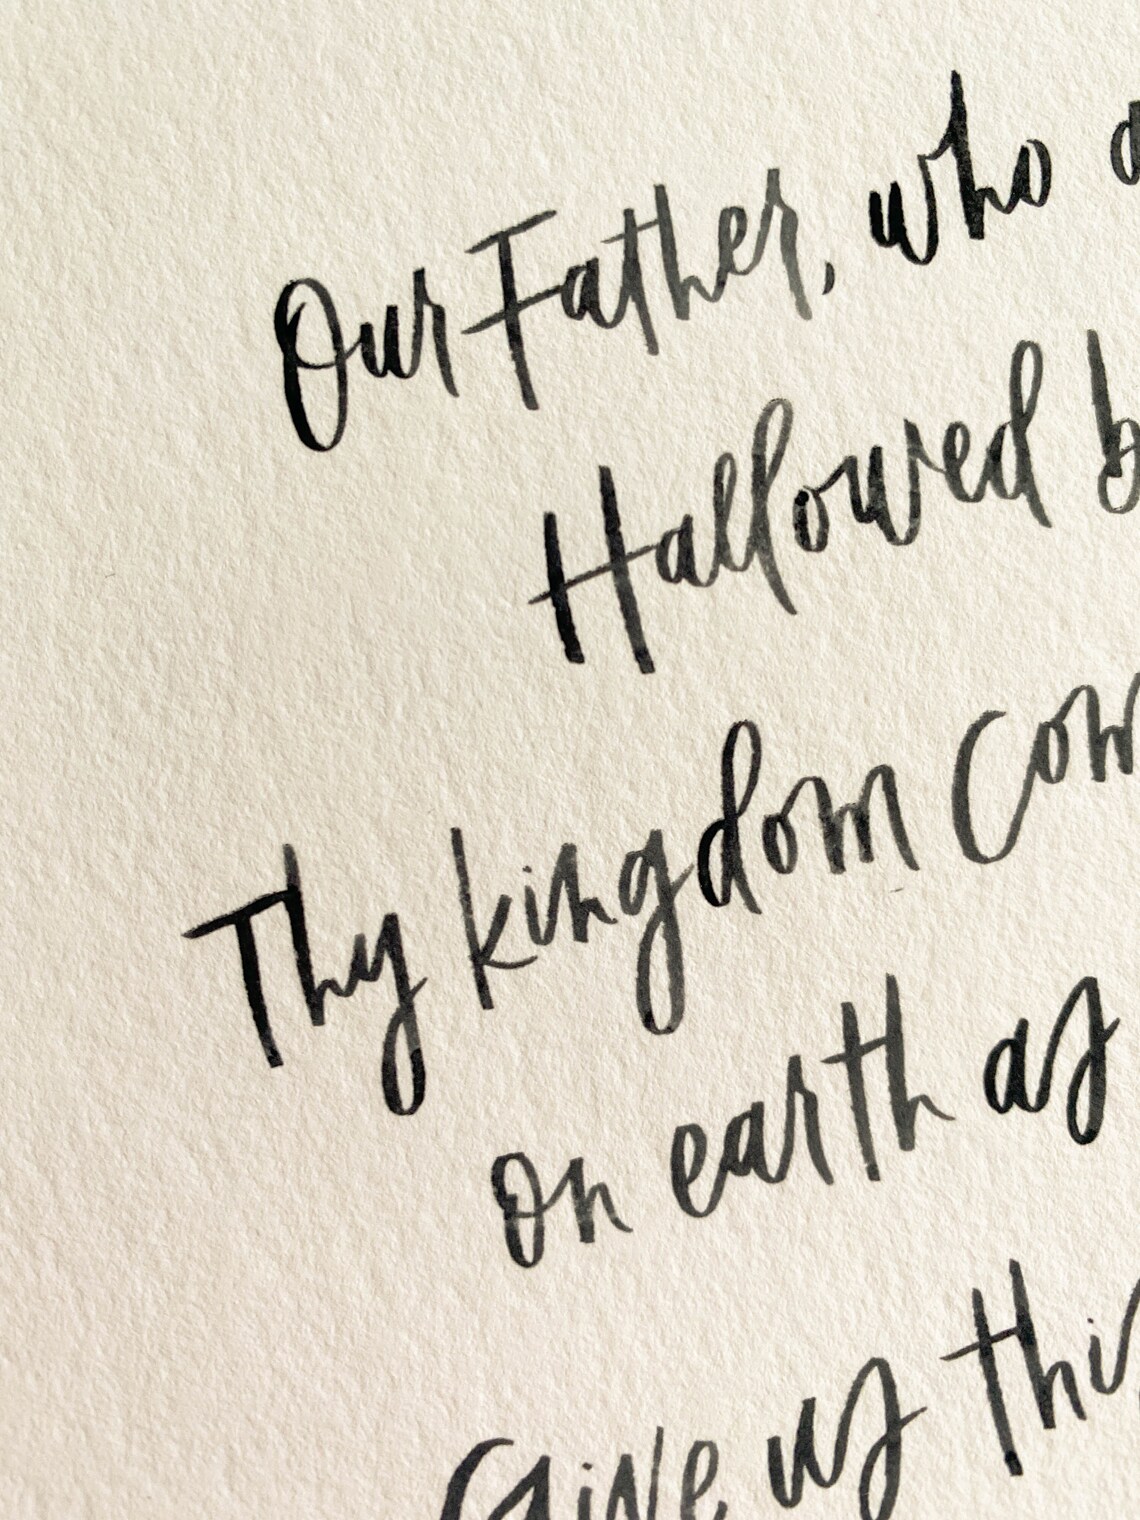 Our Father, who a
Hallowed b
Thy kingdom Com
on earth as
Give us this